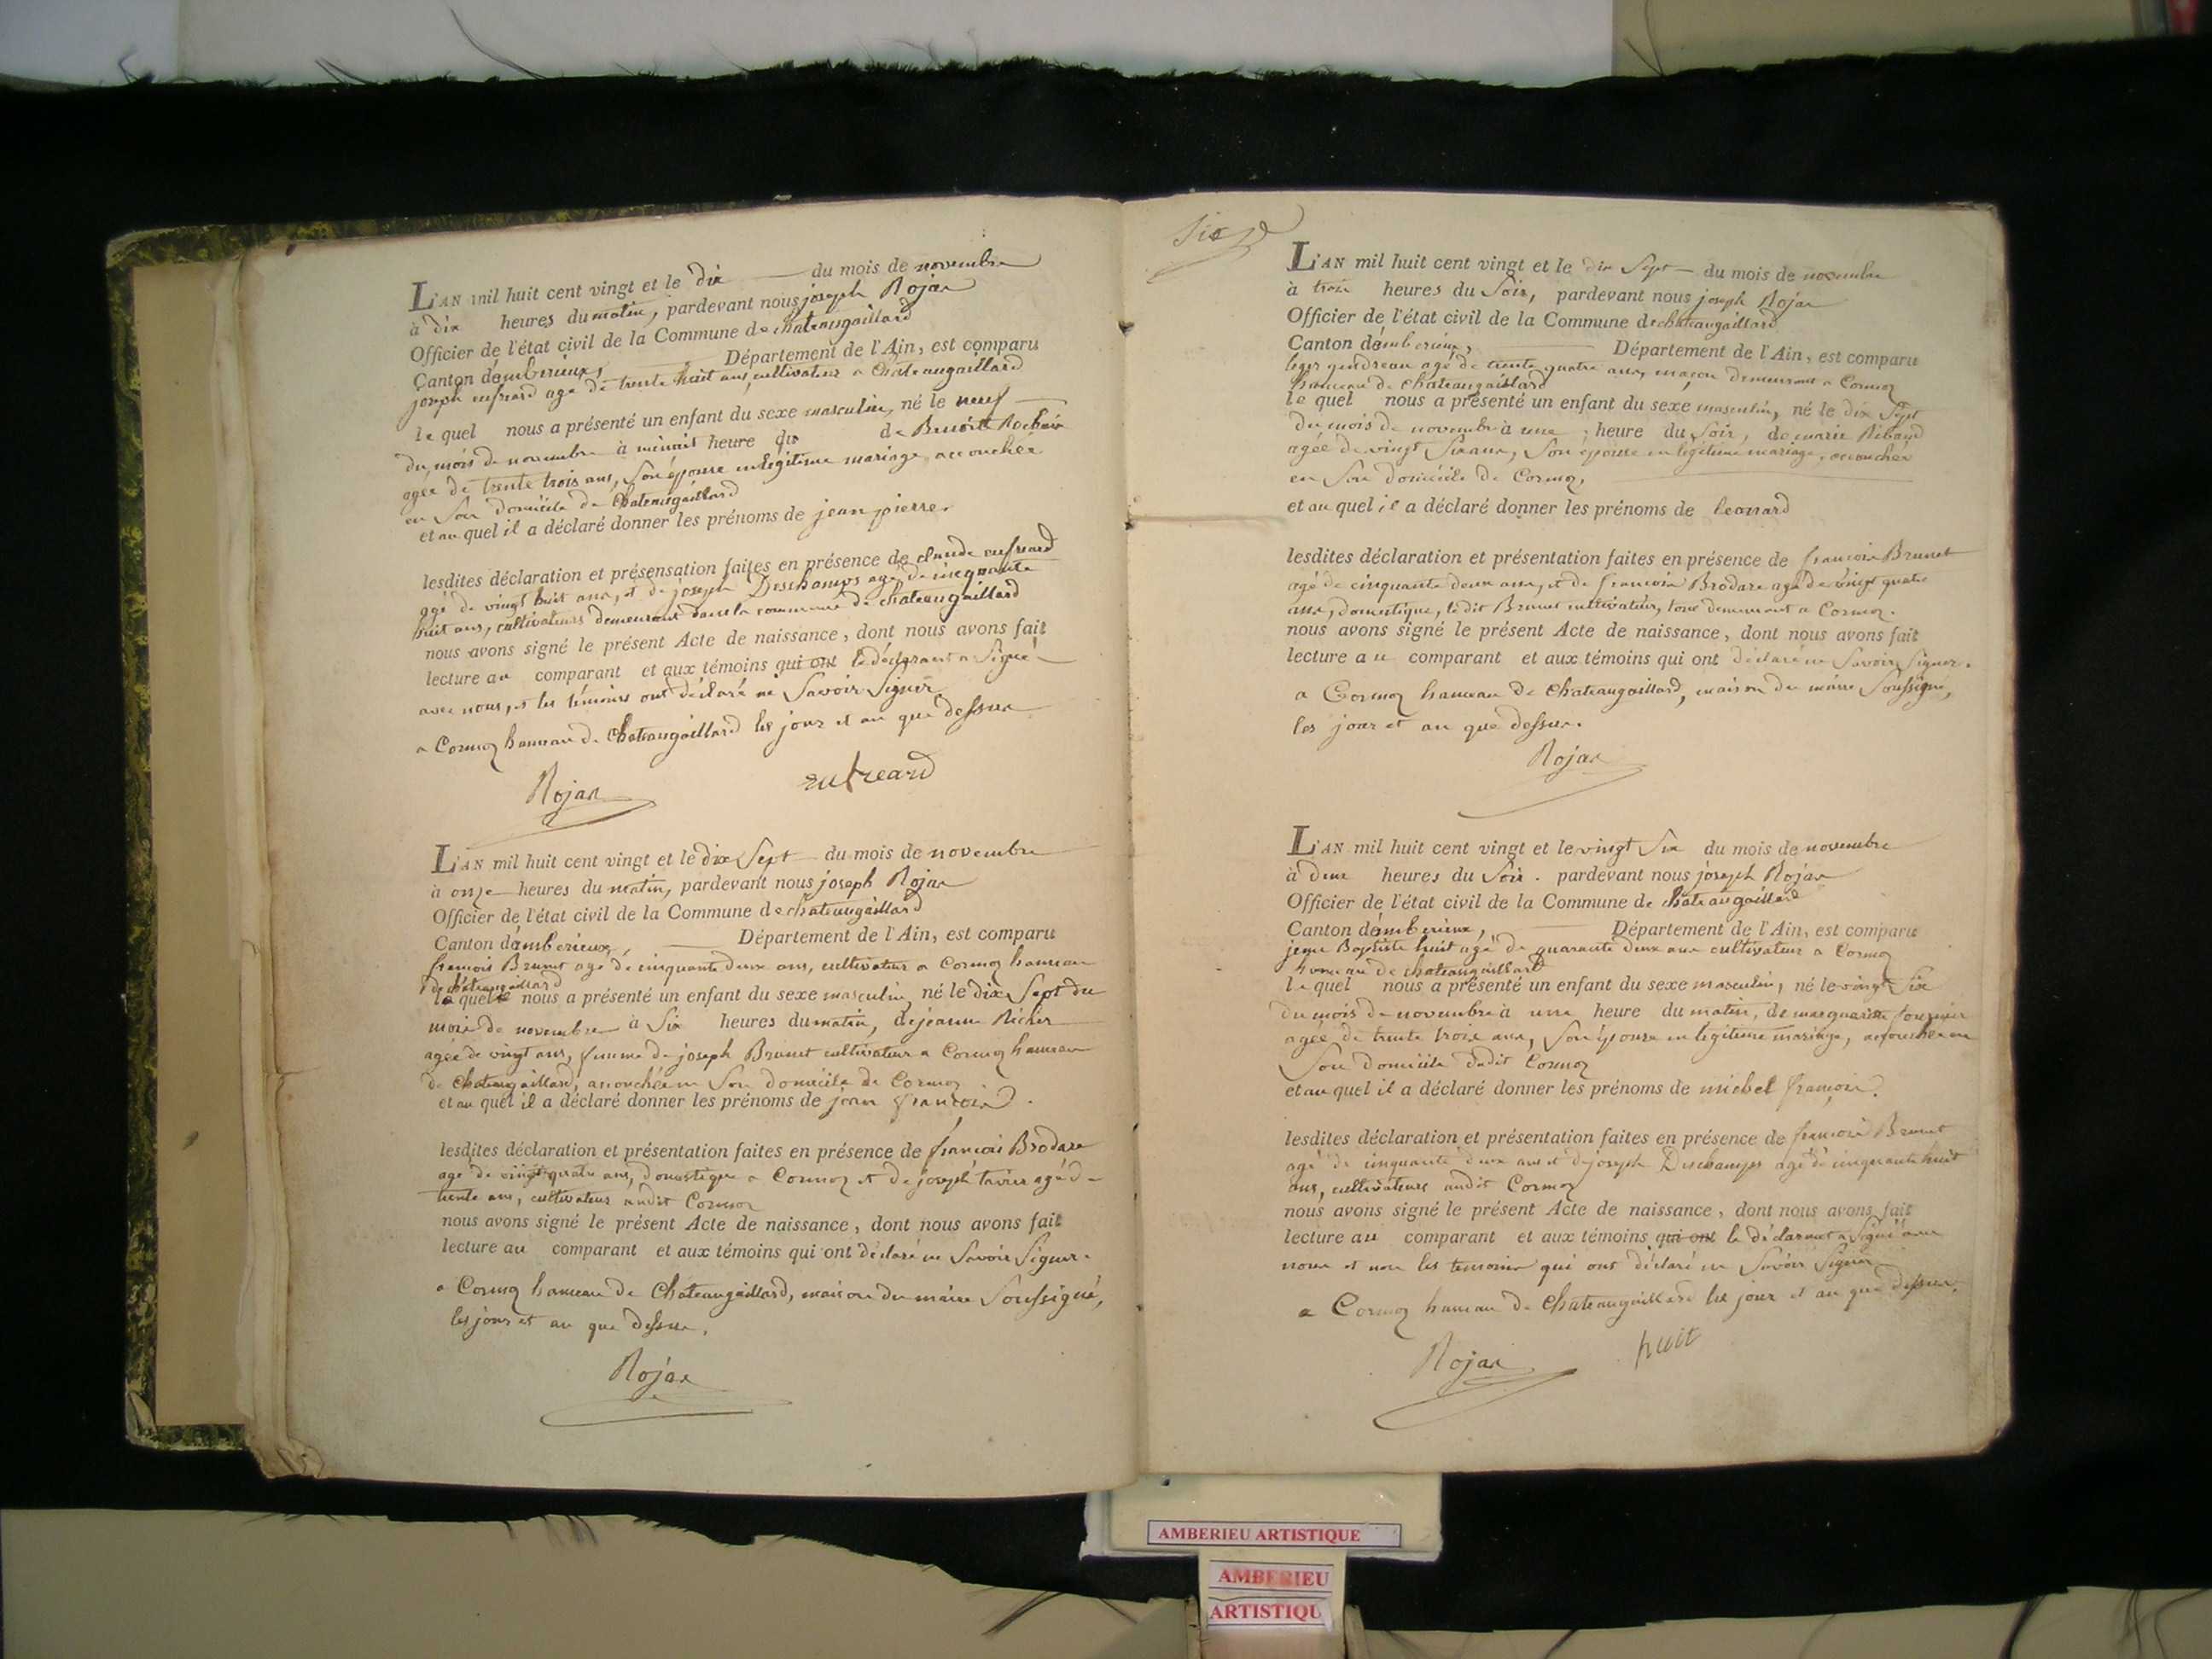 L'AN mil huit cent vingt et le dix du mois de novembre
à dix heures du matin, pardevant nous joseph Rojar
Officier de l'état civil de la Commune de chateaugaillard
Canton d'amberieux, Département de l'Ain, est comparu
joseph agé de trente huit ans, cultivateur a Chateaugaillard
le quel nous a présenté un enfant du sexe masculin, né le neuf
du mois de novembre à minuit heure du de Benoite
agée de trente trois ans, son épouse en legitime mariage, accouchée
en son domicile de Chateaugaillard
et au quel il a déclaré donner les prénoms de jean pierre.
lesdites déclaration et présensation faites en présence de claude
agé de vingt huit ans, et de joseph Deschamps agé de cinquante
huit ans, cultivateurs demeurant dans la commune de chateaugaillard
nous avons signé le présent Acte de naissance, dont nous avons fait
lecture au comparant et aux témoins qui ont le déclarant a signé
avec nous, et les témoins ont déclaré ne savoir signer
a Cormoz hameau de Chateaugaillard les jour et an que dessus
Rojar
L'AN mil huit cent vingt et le dix sept du mois de novembre
à onze heures du matin, pardevant nous joseph Rojar
Officier de l'état civil de la Commune de chateaugaillard
Canton d'amberieux, Département de l'Ain, est comparu
francois Brunet agé de cinquante deux ans, cultivateur a Cormoz hameau
de chateaugaillard
le quel nous a présenté un enfant du sexe masculin, né le dix sept du
mois de novembre à six heures du matin, de jeanne Richer
agée de vingt ans, femme de joseph Brunet cultivateur a Cormoz hameau
de chateaugaillard, accouchée en son domicile de Cormoz
et au quel il a déclaré donner les prénoms de jean francois.
lesdites déclaration et présentation faites en présence de francois Brodare
agé de vingt quatre ans, domestique a Cormoz et de joseph agé de
trente ans, cultivateur audit Cormoz
nous avons signé le présent Acte de naissance, dont nous avons fait
lecture au comparant et aux témoins qui ont déclaré ne savoir signer.
a Cormoz hameau de Chateaugaillard, maison du maire soussigné,
les jour et an que dessus.
Rojar
L'AN mil huit cent vingt et le dix sept du mois de novembre
à trois heures du soir, pardevant nous joseph Rojar
Officier de l'état civil de la Commune de chateaugaillard
Canton d'amberieux, Département de l'Ain, est comparu
leger gendreau agé de trente quatre ans, maçon demeurant a Cormoz
hameau de Chateaugaillard
le quel nous a présenté un enfant du sexe masculin, né le dix sept
du mois de novembre à une heure du soir, de marie Ribaud
agée de vingt six ans, son épouse en legitime mariage, accouchée
en son domicile de Cormoz,
et au quel il a déclaré donner les prénoms de leonard
lesdites déclaration et présentation faites en présence de francois Brunet
agé de cinquante deux ans, et de francois Brodare agé de vingt quatre
ans, domestique, le dit Brunet cultivateur, tous demeurant a Cormoz.
nous avons signé le présent Acte de naissance, dont nous avons fait
lecture au comparant et aux témoins qui ont déclaré ne savoir signer.
a Cormoz hameau de Chateaugaillard, maison du maire soussigné,
les jour et an que dessus.
Rojar
L'AN mil huit cent vingt et le vingt six du mois de novembre
à deux heures du soir. pardevant nous joseph Rojar
Officier de l'état civil de la Commune de chateaugaillard
Canton d'amberieux, Département de l'Ain, est comparu
jean Baptiste huit agé de quarante deux ans cultivateur a Cormoz
hameau de chateaugaillard
le quel nous a présenté un enfant du sexe masculin, né le vingt six
du mois de novembre à une heure du matin, de marguerite fournier
agée de trente trois ans, son épouse en legitime mariage, accouchée en
son domicile dudit Cormoz
et au quel il a déclaré donner les prénoms de michel francois.
lesdites déclaration et présentation faites en présence de francois Brunet
agé de cinquante deux ans et de joseph Deschamps agé de cinquante huit
ans, cultivateurs audit Cormoz
nous avons signé le présent Acte de naissance, dont nous avons fait
lecture au comparant et aux témoins qui ont le déclarant a signé avec
nous et non les temoins qui ont déclaré ne savoir signer
a Cormoz hameau de Chateaugaillard les jour et an que dessus.
Rojar huit
AMBERIEU ARTISTIQUE
AMBERIEU
ARTISTIQU